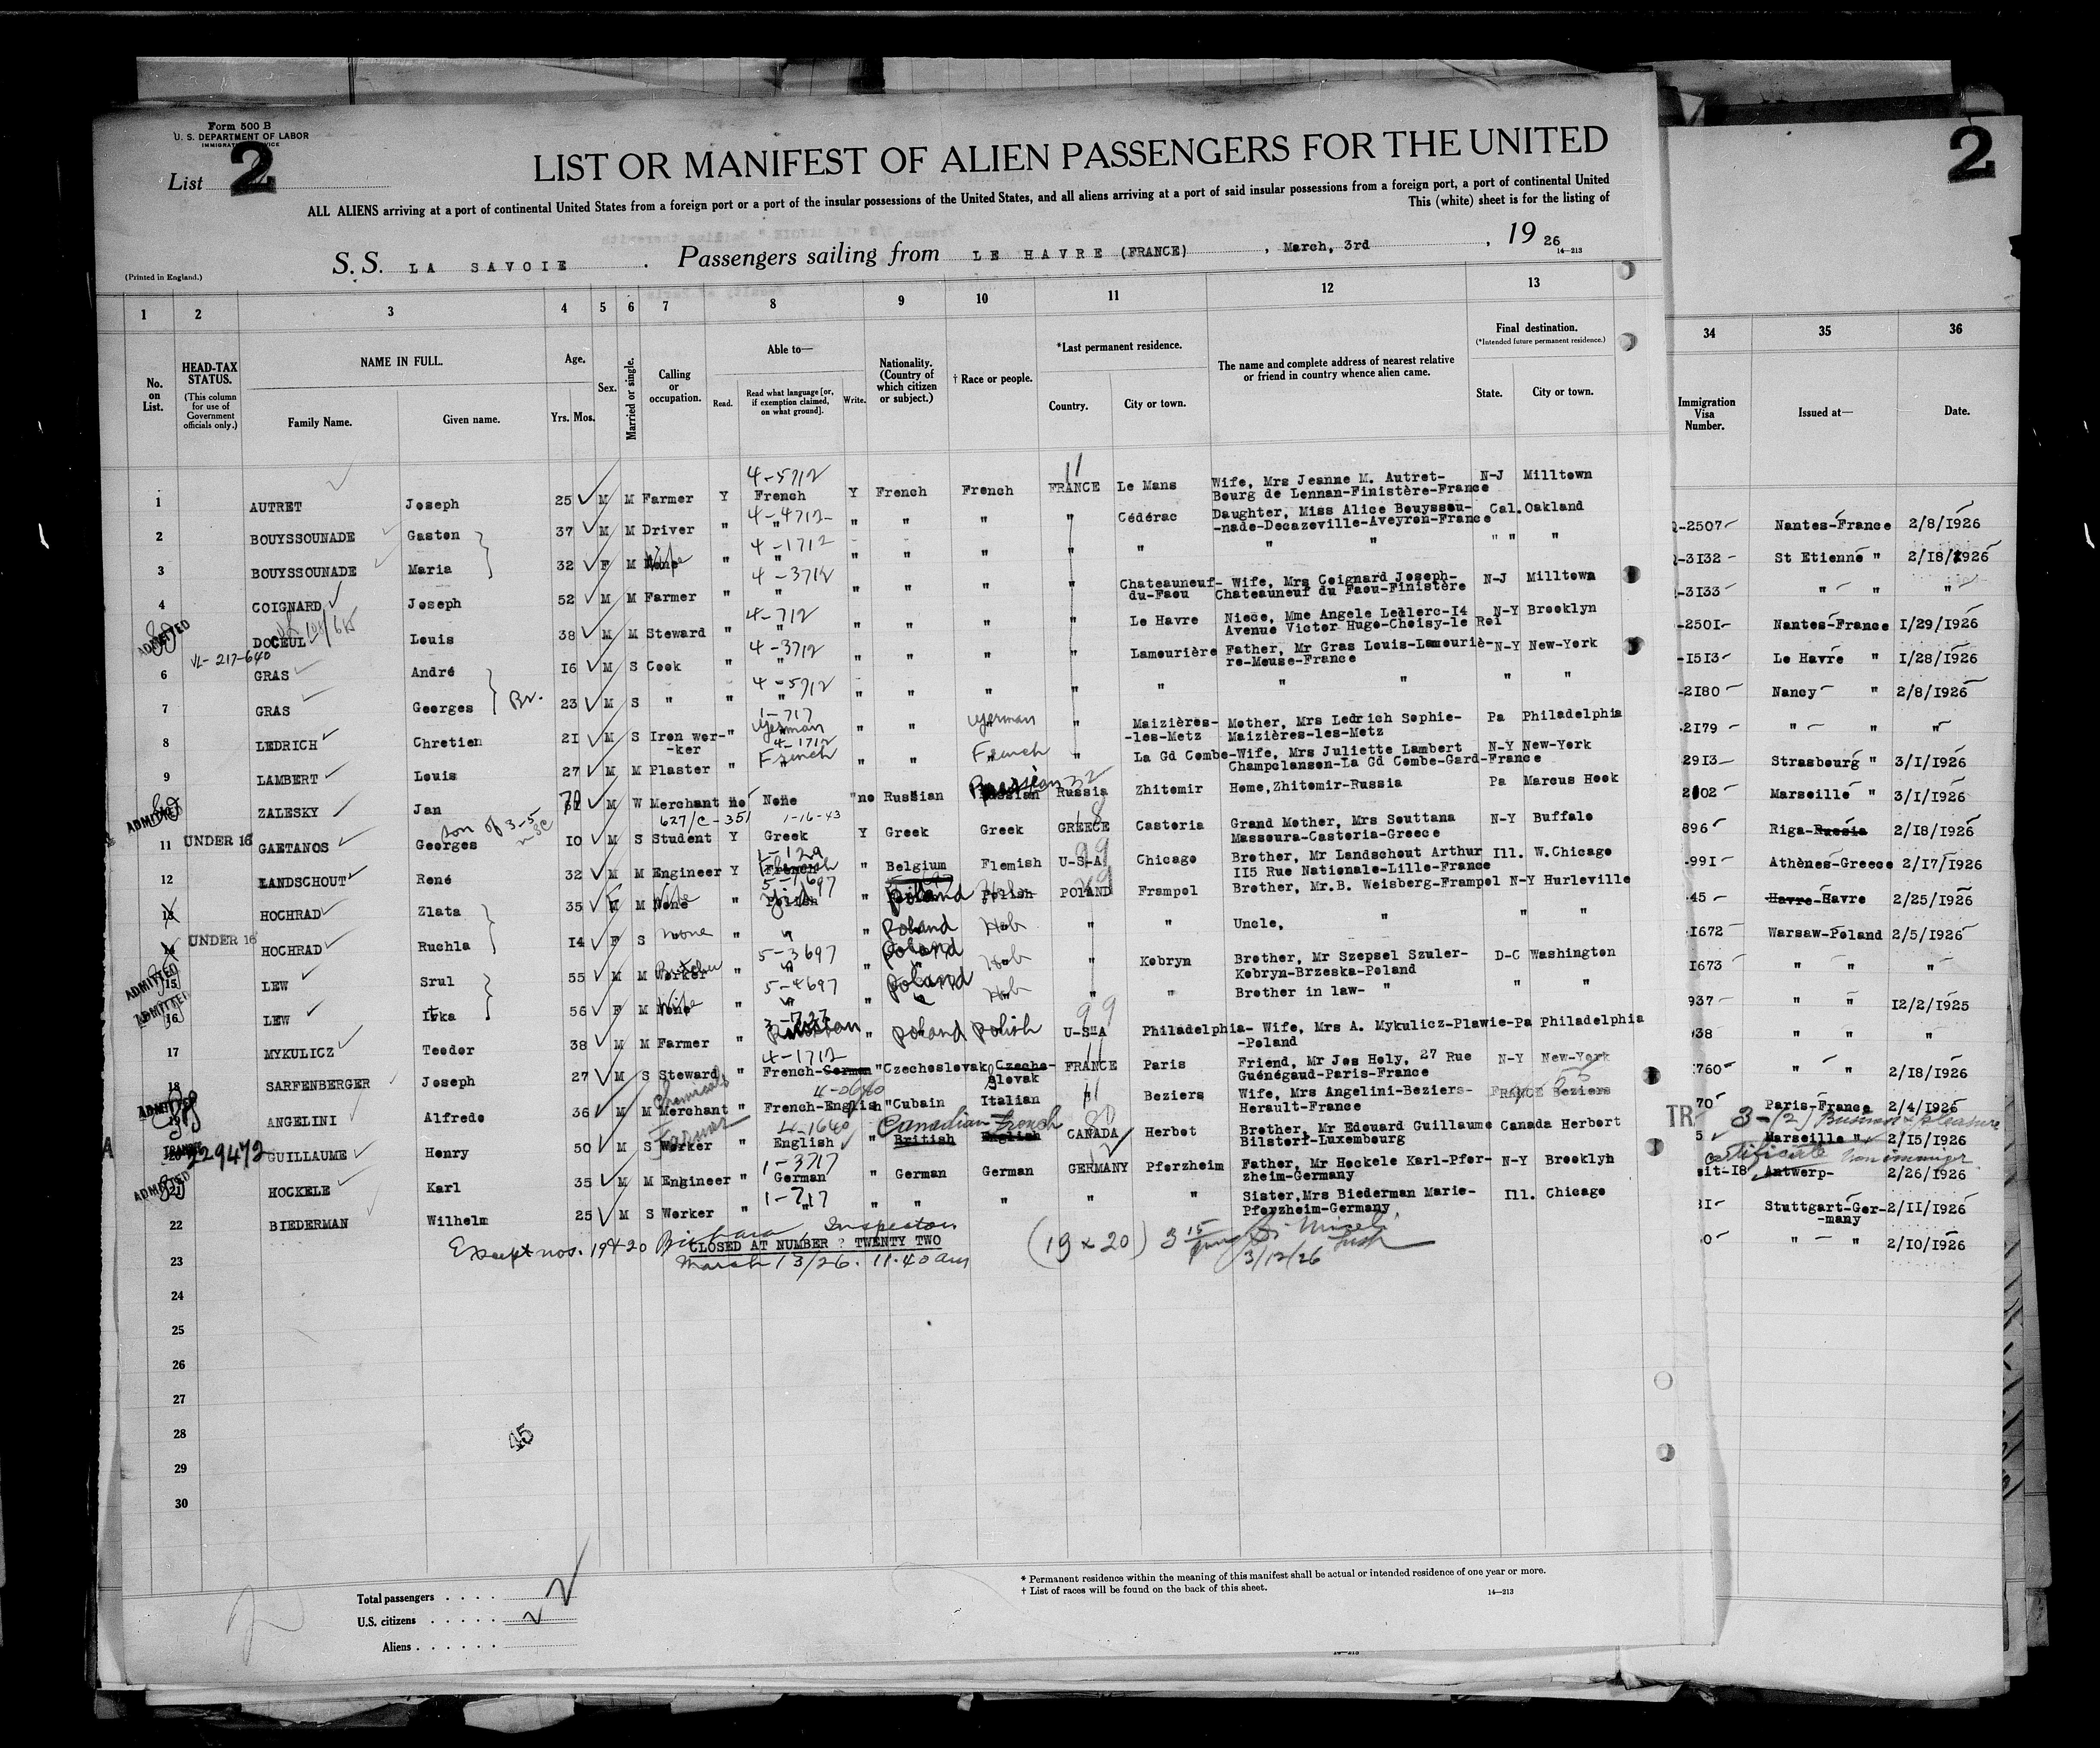 Form 500 B
U. S. DEPARTMENT OF LABOR
List 2
2
LIST OR MANIFEST OF ALIEN PASSENGERS FOR THE UNITED
ALL ALIENS arriving at a port of continental United States from a foreign port or a port of the insular possessions of the United States, and all aliens arriving at a port of said insular possessions from a foreign port, a port of continental United
This (white) sheet is for the listing of
(Printed in England.)
S. S. LA SAVOIE . Passengers sailing from LE HAVRE (FRANCE) , March, 3rd , 19 26
14—213
1 2 3 4 5 6 7 8 9 10 11 12 13 34 35 36
No. on List.
HEAD-TAX STATUS. (This column for use of Government officials only.)
NAME IN FULL. Family Name. Given name.
Age. Yrs. Mos.
Sex.
Married or single.
Calling or occupation.
Able to— Read. Read what language [or, if exemption claimed, on what ground]. Write.
Nationality. (Country of which citizen or subject.)
† Race or people.
*Last permanent residence. Country. City or town.
The name and complete address of nearest relative or friend in country whence alien came.
Final destination. (*Intended future permanent residence.) State. City or town.
Immigration Visa Number.
Issued at—
Date.
4-5712
1 AUTRET Joseph 25 M M Farmer Y French Y French French FRANCE Le Mans Wife, Mrs Jeanne M. Autret- Bourg de Lennan-Finistère-France N-J Milltown
4-4712
2 BOUYSSOUNADE Gaston 37 M M Driver " " " " " " Cédérac Daughter, Miss Alice Bouyssou- -nade-Decazeville-Aveyron-France Cal. Oakland
-2507 Nantes-France 2/8/1926
4-1712
3 BOUYSSOUNADE Maria 32 F M None Wife " " " " " " " " " " " "
-3132 St Etienne " 2/18/1926
4-3712
4 COIGNARD Joseph 52 M M Farmer " " " " " " Chateauneuf- du-Faou Wife, Mrs Coignard Joseph- Chateauneuf du Faou-Finistère N-J Milltown
-3133 " " "
4-712
ADMITTED DOCEUL Louis 38 M M Steward " " " " " " Le Havre Niece, Mme Angele Leclerc-14 Avenue Victor Hugo-Choisy-le Roi N-Y Brooklyn
-2501- Nantes-France 1/29/1926
VL-217-640
4-3712
6 GRAS André 16 M S Cook " " " " " " Lamourière Father, Mr Gras Louis-Lamouriè- re-Meuse-France N-Y New-York
-1513 Le Havre " 1/28/1926
4-5712
7 GRAS Georges Br. 23 M S " " " " " " " " " " " "
-2180 Nancy " 2/8/1926
1-717
8 LEDRICH Chretien 21 M S Iron wor- -ker " German " " German " Maizières- -les-Metz Mother, Mrs Ledrich Sophie- Maizières-les-Metz Pa Philadelphia
2179 " " "
4-1712
9 LAMBERT Louis 27 M M Plaster " French " " French " La Gd Combe- Wife, Mrs Juliette Lambert Champclanson-La Gd Combe-Gard-France N-Y New-York
2913 Strasbourg " 3/1/1926
ADMITTED ZALESKY Jan M W Merchant no None no Russian Russian Russia Zhitomir Home, Zhitomir-Russia Pa Marcus Hook
Marseille " 3/1/1926
627/C-351 1-16-43
11 UNDER 16 GAETANOS Georges son of 10 M S Student Y Greek Y Greek Greek GREECE Castoria Grand Mother, Mrs Souttana Massoura-Castoria-Greece N-Y Buffalo
896 Riga-Russia 2/18/1926
1-129
12 LANDSCHOUT René 32 M M Engineer Y French " Belgium Flemish U-S-A Chicago Brother, Mr Landschout Arthur 115 Rue Nationale-Lille-France Ill. W.Chicago
991- Athènes-Greece 2/17/1926
13 HOCHRAD Zlata 35 F M None Wife " Polish " Poland Polish Heb POLAND Frampol Brother, Mr.B. Weisberg-Frampol N-Y Hurleville
45 Havre-Havre 2/25/1926
14 UNDER 16 HOCHRAD Ruchla 14 F S none " " " Poland Heb " " Uncle, " " "
1672 Warsaw-Poland 2/5/1926
5-3697
ADMITTED 15 LEW Srul 55 M M Worker Butcher " " " Poland Heb " Kobryn Brother, Mr Szepsel Szuler- Kobryn-Brzeska-Poland D-C Washington
1673 " " "
5-4697
ADMITTED 16 LEW Itka 56 F M None Wife " " " Poland Heb " " Brother in law- " " "
937 " " 12/2/1925
17 MYKULICZ Teodor 38 M M Farmer " Russian " Poland Polish U-S-A Philadelphia- Wife, Mrs A. Mykulicz-Plawie- -Poland Pa Philadelphia
938 " " "
4-1712
18 SARFENBERGER Joseph 27 M S Steward " French-German " Czechoslovak Czecho- Slovak FRANCE Paris Friend, Mr Jos Holy, 27 Rue Guénégaud-Paris-France N-Y New-York
760 " " 2/18/1926
ADMITTED ANGELINI Alfredo 36 M M Chemicals Merchant " French-English " Cubain Italian " Beziers Wife, Mrs Angelini-Beziers- Herault-France FRANCE Beziers
70 Paris-France 2/4/1926
TR 3-(2) Business & pleasure
4-1640
229472 GUILLAUME Henry 50 M S Farmer Worker " English " British Canadian English French CANADA Herbot Brother, Mr Edouard Guillaume Bilstorf-Luxembourg Canada Herbert
5 Marseille " 2/15/1926
Certificate
1-3717
ADMITTED 21 HOCKELE Karl 35 M M Engineer " German " German German GERMANY Pforzheim Father, Mr Hockele Karl-Pfor- zheim-Germany N-Y Brooklyn
sit-18 Antwerp- 2/26/1926
22 BIEDERMAN Wilhelm 25 M S Worker " " " " " " " Sister, Mrs Biederman Marie- Pforzheim-Germany Ill. Chicago
31- Stuttgart-Ger- -many 2/11/1926
Except nos. 19+20 Inspector
CLOSED AT NUMBER ? TWENTY TWO
0- " " 2/10/1926
March 13/26. 11.40 am
(19 x 20)
3/12/26
23
24
25
26
27
28
45
29
30
Total passengers . . . .
U.S. citizens . . . . .
Aliens . . . . . .
* Permanent residence within the meaning of this manifest shall be actual or intended residence of one year or more.
† List of races will be found on the back of this sheet.
14—213